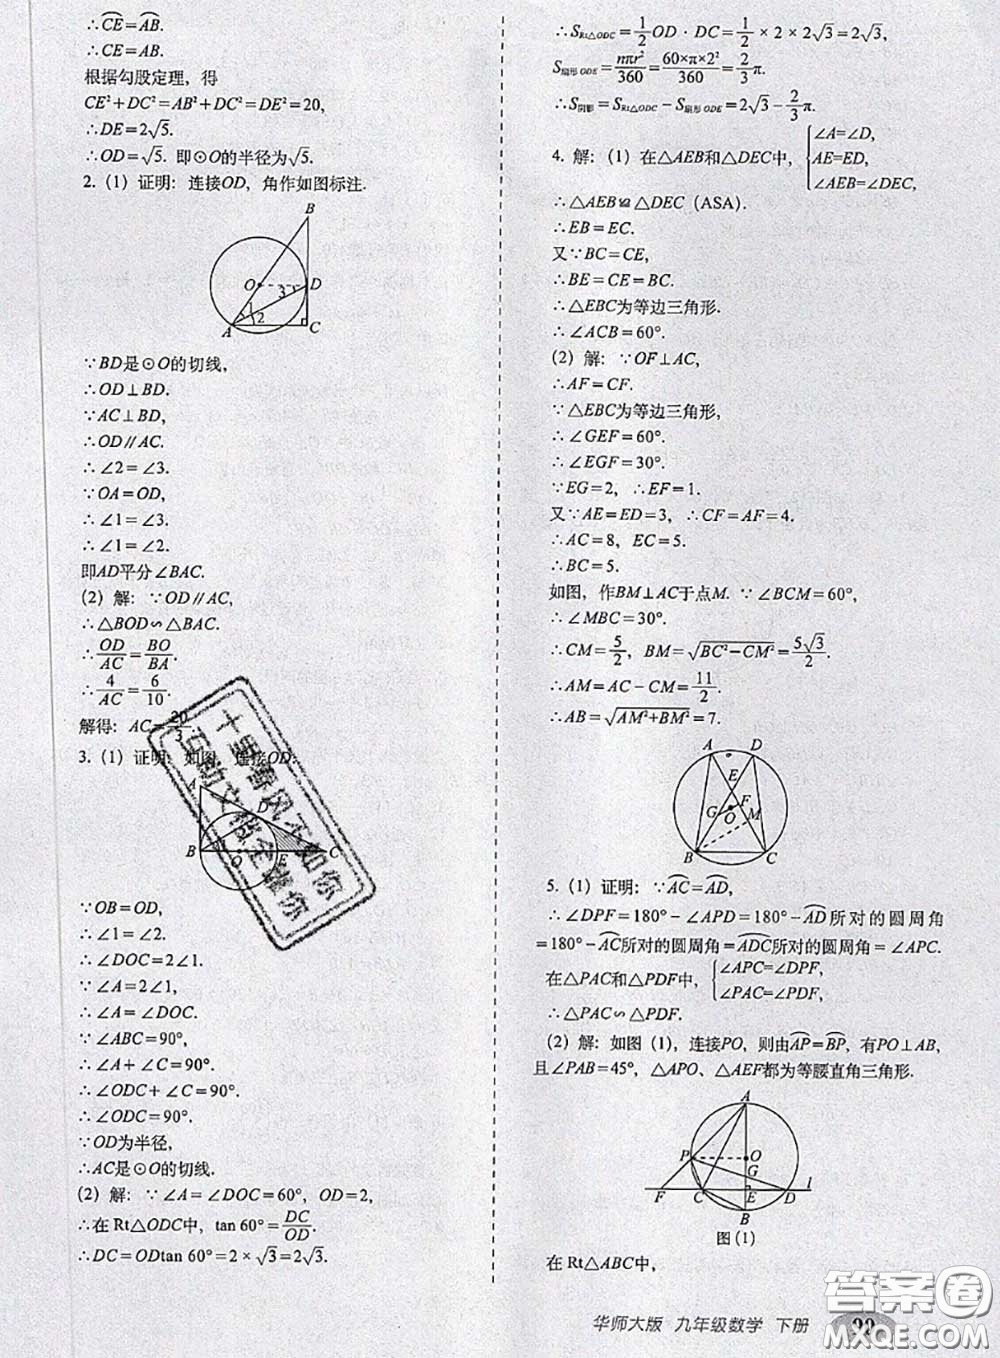 ∴CE=AB.
∴CE=AB.
根据勾股定理，得
CE²+DC²=AB²+DC²=DE²=20,
∴DE=2√5.
∴OD=√5. 即⊙O的半径为√5.
2.（1）证明：连接OD，角作如图标注.
B
O
3
D
2
1
A
C
∵BD是⊙O的切线，
∴OD⊥BD.
∵AC⊥BD,
∴OD∥AC.
∴∠2=∠3.
∵OA=OD,
∴∠1=∠3.
∴∠1=∠2.
即AD平分∠BAC.
（2）解：∵OD∥AC,
∴△BOD∽△BAC.
∴OD/AC=BO/BA.
∴4/AC=6/10.
解得：AC=20/3.
3.（1）证明：如图，连接OD.
A
D
B
O
E
C
∵OB=OD,
∴∠1=∠2.
∴∠DOC=2∠1.
∵∠A=2∠1,
∴∠A=∠DOC.
∵∠ABC=90°,
∴∠A+∠C=90°.
∴∠ODC+∠C=90°.
∴∠ODC=90°.
∵OD为半径，
∴AC是⊙O的切线.
（2）解：∵∠A=∠DOC=60°，OD=2,
∴在Rt△ODC中，tan 60°=DC/OD.
∴DC=ODtan 60°=2×√3=2√3.
∴S Rt△ODC=1/2 OD·DC=1/2×2×2√3=2√3,
S扇形ODE=nπr²/360=60×π×2²/360=2/3 π.
∴S阴影=S Rt△ODC−S扇形ODE=2√3−2/3 π.
4. 解：（1）在△AEB和△DEC中，{∠A=∠D,
AE=ED,
∠AEB=∠DEC,
∴△AEB≌△DEC（ASA）.
∴EB=EC.
又∵BC=CE,
∴BE=CE=BC.
∴△EBC为等边三角形.
∴∠ACB=60°.
（2）解：∵OF⊥AC,
∴AF=CF.
∵△EBC为等边三角形，
∴∠GEF=60°.
∴∠EGF=30°.
∵EG=2，∴EF=1.
又∵AE=ED=3，∴CF=AF=4.
∴AC=8，EC=5.
∴BC=5.
如图，作BM⊥AC于点M. ∵∠BCM=60°,
∴∠MBC=30°.
∴CM=5/2，BM=√(BC²−CM²)=5√3/2.
∴AM=AC−CM=11/2.
∴AB=√(AM²+BM²)=7.
A
D
E
G
F
O
M
B
C
5.（1）证明：∵AC=AD,
∴∠DPF=180°−∠APD=180°−AD所对的圆周角
=180°−AC所对的圆周角=ADC所对的圆周角=∠APC.
在△PAC和△PDF中，{∠APC=∠DPF,
∠PAC=∠PDF,
∴△PAC∽△PDF.
（2）解：如图（1），连接PO，则由AP=BP，有PO⊥AB,
且∠PAB=45°，△APO、△AEF都为等腰直角三角形.
A
P
O
G
F
C
E
D
l
B
图（1）
在Rt△ABC中，
十里春风不如你
互动文档全靠你
华师大版 九年级数学 下册
答案圈
MXQE.COM